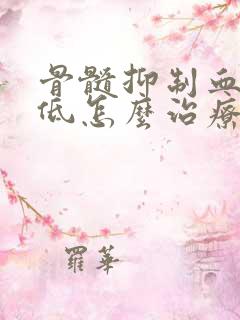 骨髓抑制血
低怎麼治療
羅華